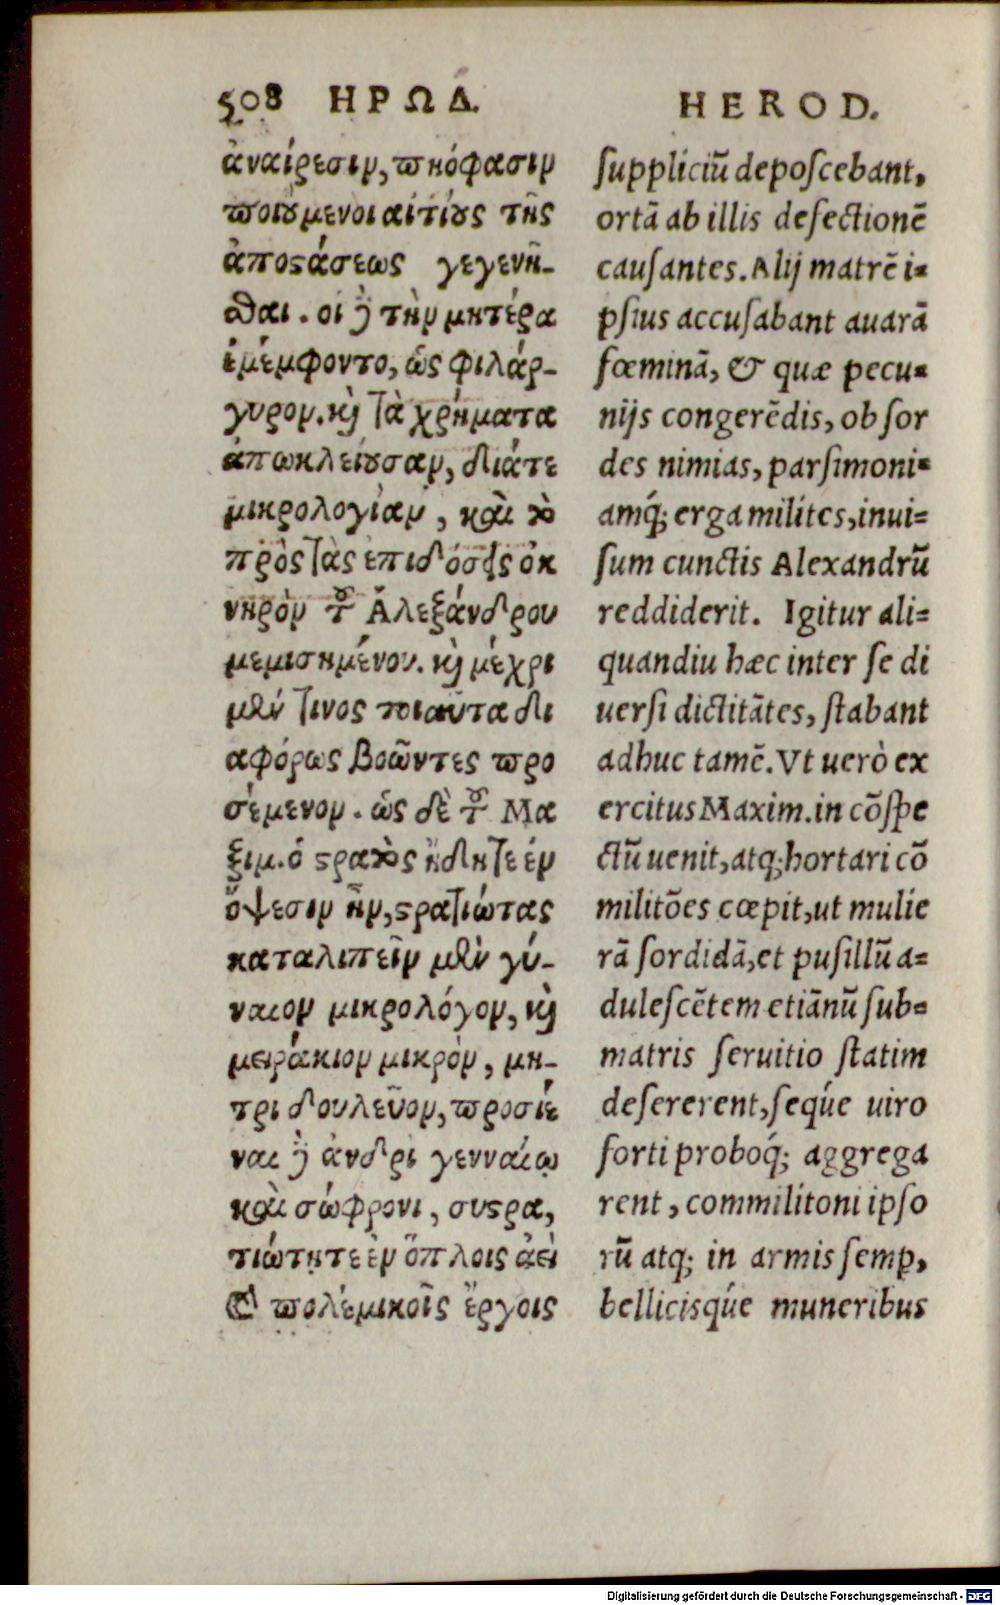 508 ΗΡΩΔ.
ἀναίρεσιν, πρόφασιν
ποιούμενοι αἰτίους τῆς
ἀποστάσεως γεγενῆ-
σθαι. οἱ δὲ τὴν μητέρα
ἐμέμφοντο, ὡς φιλάρ-
γυρον. καὶ τὰ χρήματα
ἀπωκλείουσαν, διάτε
μικρολογίαν, καὶ τὸ
πρὸς τὰς ἐπιδόσεις ὀκ
νηρὸν τοῦ Ἀλεξάνδρου
μεμισημένου. καὶ μέχρι
μέν τινος τοιαῦτα δι
αφόρως βοῶντες προ
σέμενον. ὡς δὲ τοῦ Μα
ξιμ. ὁ στρατὸς ἤδητε ἐν
ὄψεσιν ἦν, στρατιώτας
καταλιπεῖν μὲν γύ-
ναιον μικρολόγον, καὶ
μειράκιον μικρὸν, μη-
τρι δουλεῦον, προσιέ
ναι δὲ ἀνδρὶ γενναίῳ
καὶ σώφρονι, συστρα,
τιώτητε ἐν ὅπλοις ἀεὶ
καὶ πολεμικοῖς ἔργοις
HEROD.
ſuppliciũ depoſcebant,
ortã ab illis defectionẽ
cauſantes. Alij matrẽ i=
pſius accuſabant auarã
fœminã, & quæ pecu=
nijs congerẽdis, ob ſor
des nimias, parſimoni=
amq́; erga milites, inui=
ſum cunctis Alexandrũ
reddiderit. Igitur ali=
quandiu hæc inter ſe di
uerſi dictitãtes, ſtabant
adhuc tamẽ. Vt uerò ex
ercitus Maxim. in cõſpe
ctũ uenit, atq; hortari cõ
militões cœpit, ut mulie
rã ſordidã, et puſillũ a=
duleſcẽtem etiãnũ ſub=
matris ſeruitio ſtatim
deſererent, ſeq́ue uiro
forti proboq́; aggrega
rent, commilitoni ipſo
rũ atq; in armis ſemp,
bellicisq́ue muneribus
Digitalisierung gefördert durch die Deutsche Forschungsgemeinschaft - DFG